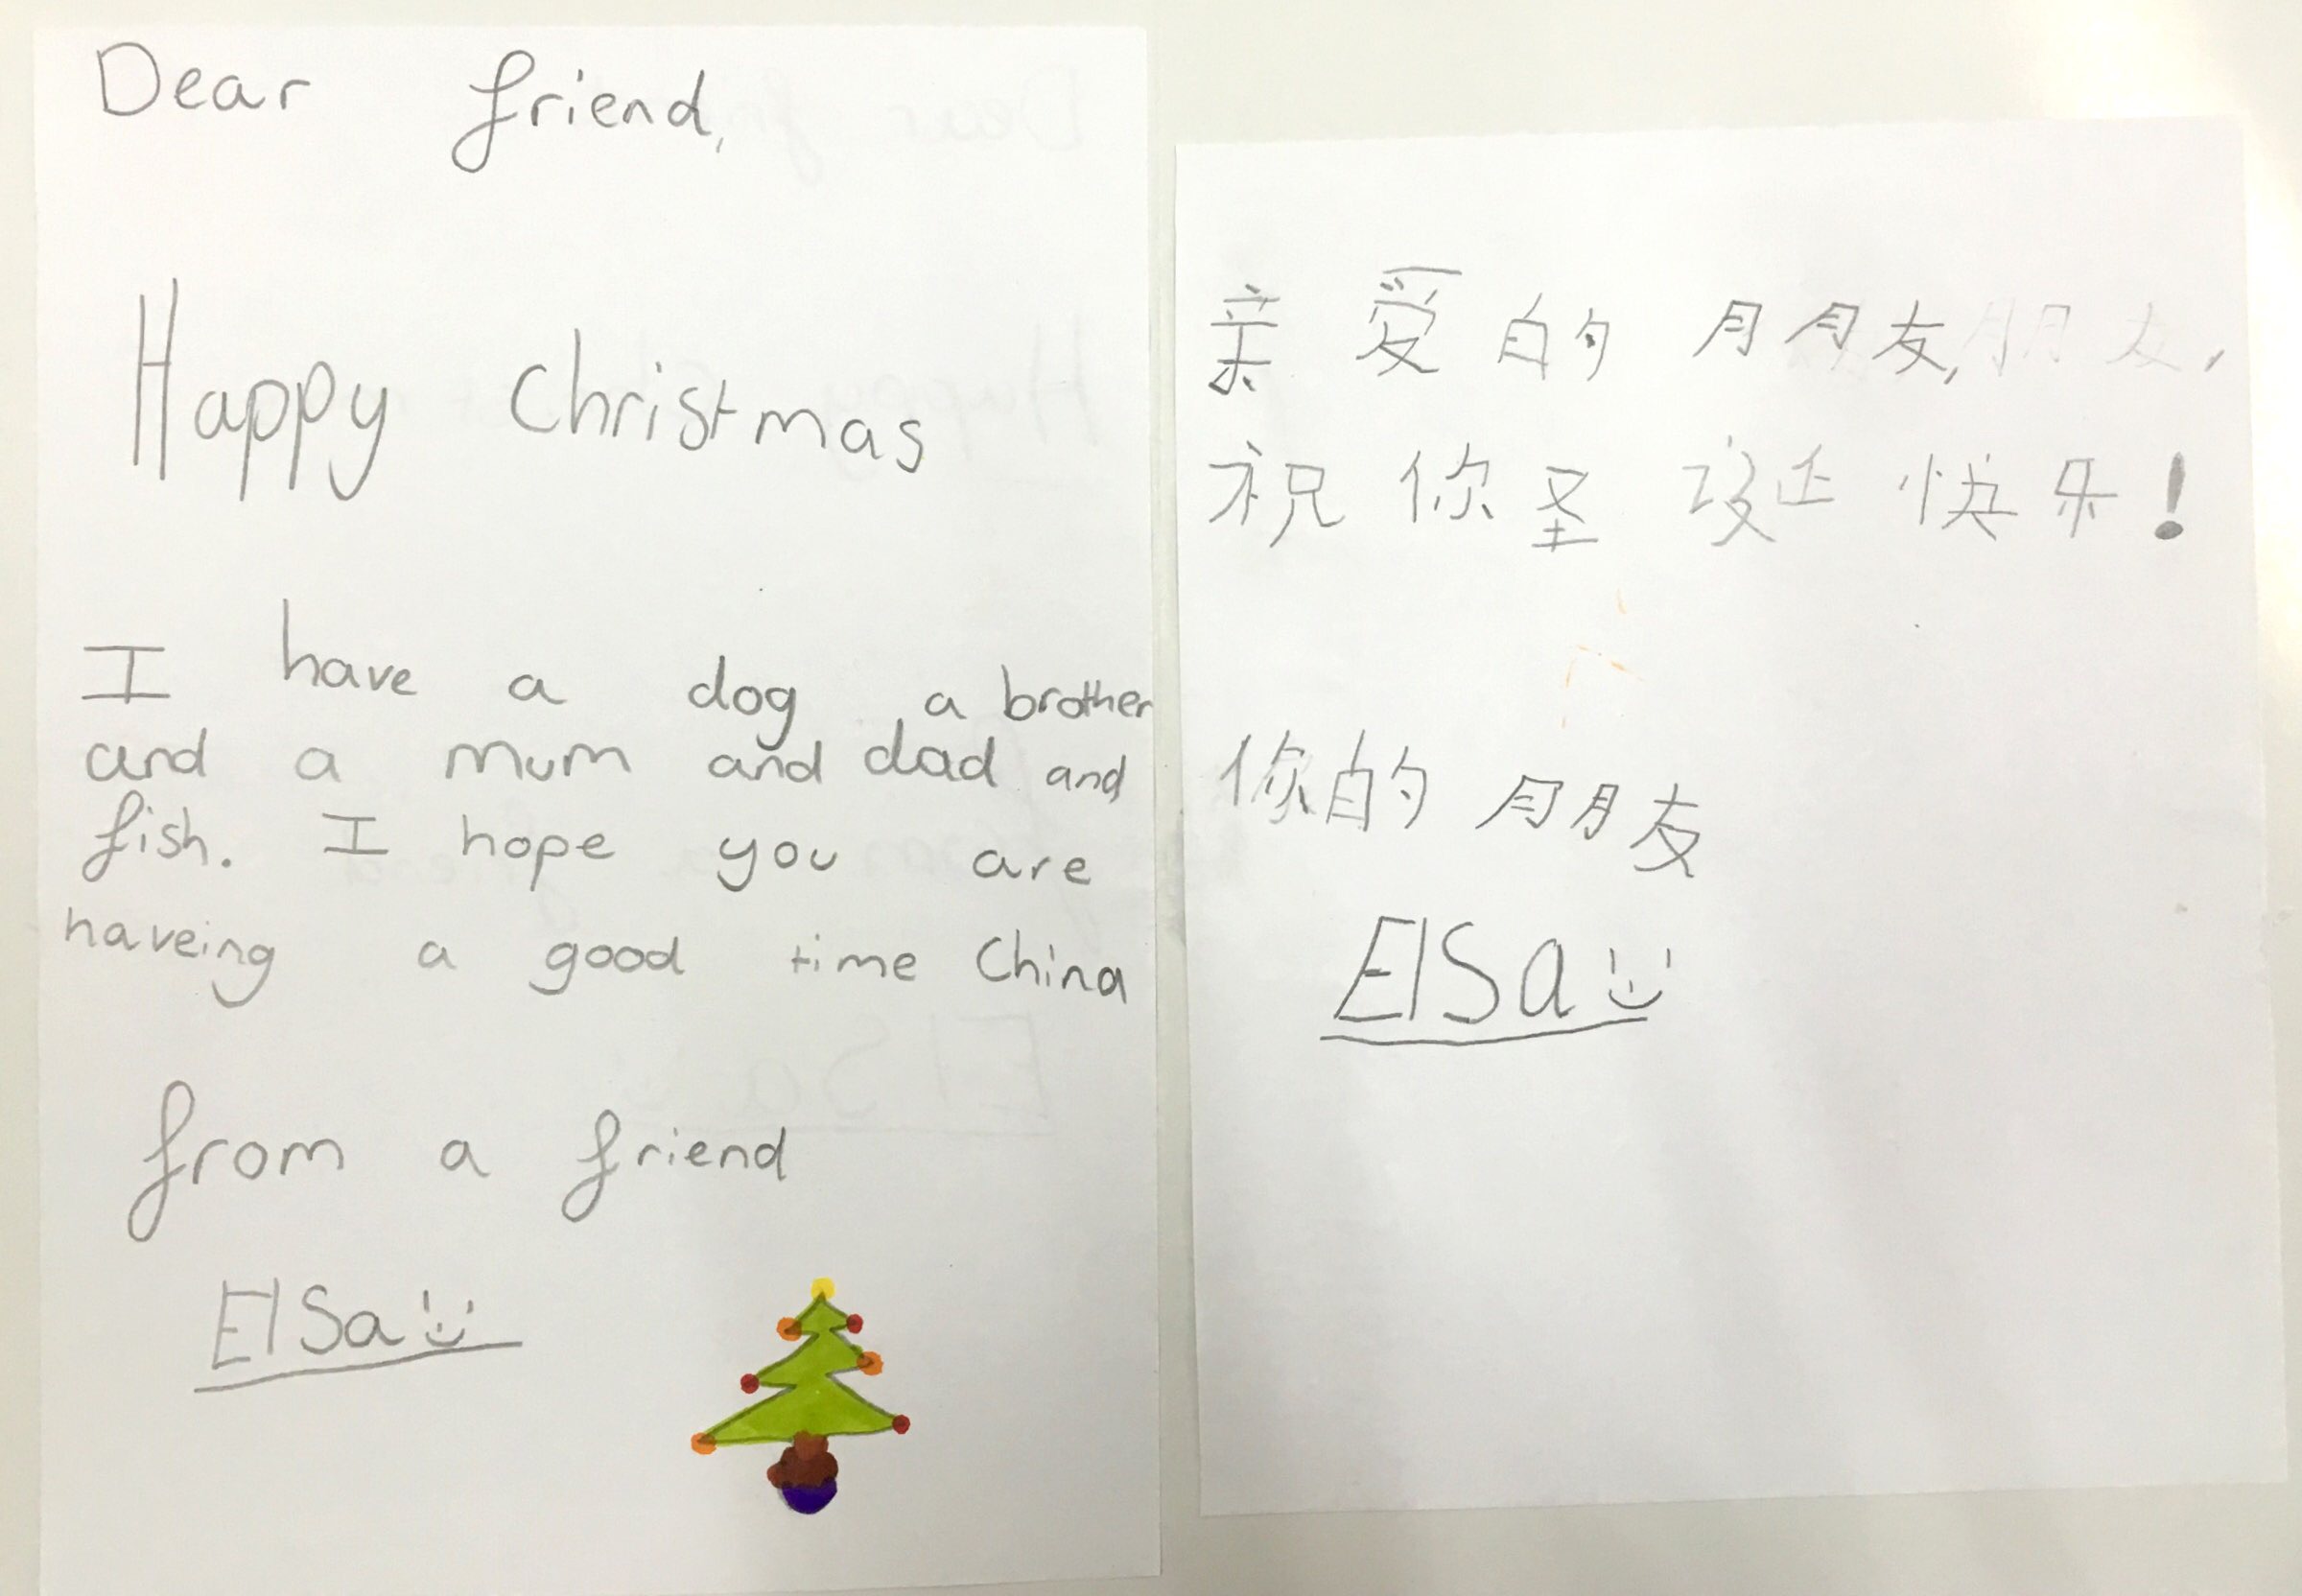 Dear friend,
Happy Christmas
I have a dog, a brother
and a mum and dad and
fish. I hope you are
haveing a good time China
from a friend
Elsa
亲爱的朋友,朋友,
祝你圣诞快乐!
你的朋友
Elsa